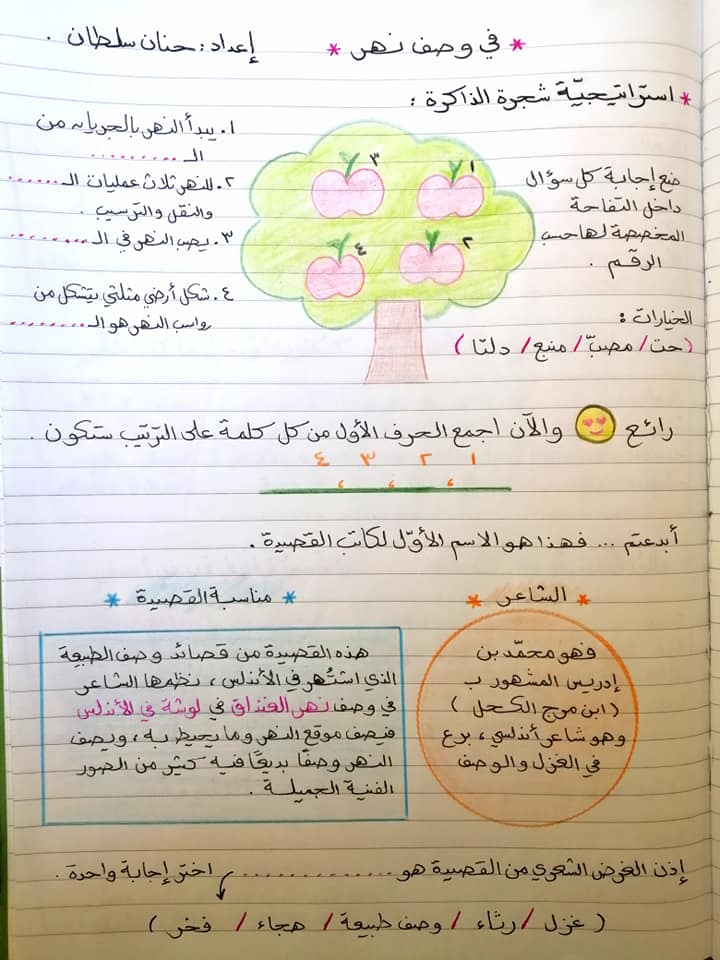 * في وصف نهر * إعداد : حنان سلطان .
* استراتيجيّة شجرة الذاكرة :
ضع إجابة كل سؤال
داخل التفاحة
المخصصة لها حسب
الرقم .
الخيارات :
( حت / مصبّ / منبع / دلتا )
١
٢
٣
٤
١. يبدأ النهر بالجريان من
الـ ..........
٢. للنهر ثلاث عمليات الـ .......
والنقل والترسيب .
٣. يصب النهر في الـ .........
٤. شكل أرضي مثلثي يتشكل من
رواسب النهر هو الـ .........
رائع والآن اجمع الحرف الأول من كل كلمة على الترتيب ستكون .
١ ٢ ٣ ٤
، ، ،
أبدعتم ... فهذا هو الاسم الأوّل لكاتب القصيدة .
* الشاعر *
فهو محمّد بن
إدريس المشهور ب
( ابن مرج الكحل )
وهو شاعر أندلسي ، برع
في الغزل والوصف
* مناسبة القصيدة *
هذه القصيدة من قصائد وصف الطبيعة
الذي اشتُهر في الأندلس ، نظمها الشاعر
في وصف نهر الغنداق في لوشة في الأندلس
فيصف موقع النهر وما يحيط به ، ويصف
النهر وصفًا بديعًا فيه كثير من الصور
الفنية الجميلة .
إذن الغرض الشعري من القصيدة هو ............ اختر إجابة واحدة .
( غزل / رثاء / وصف طبيعة / هجاء / فخر )